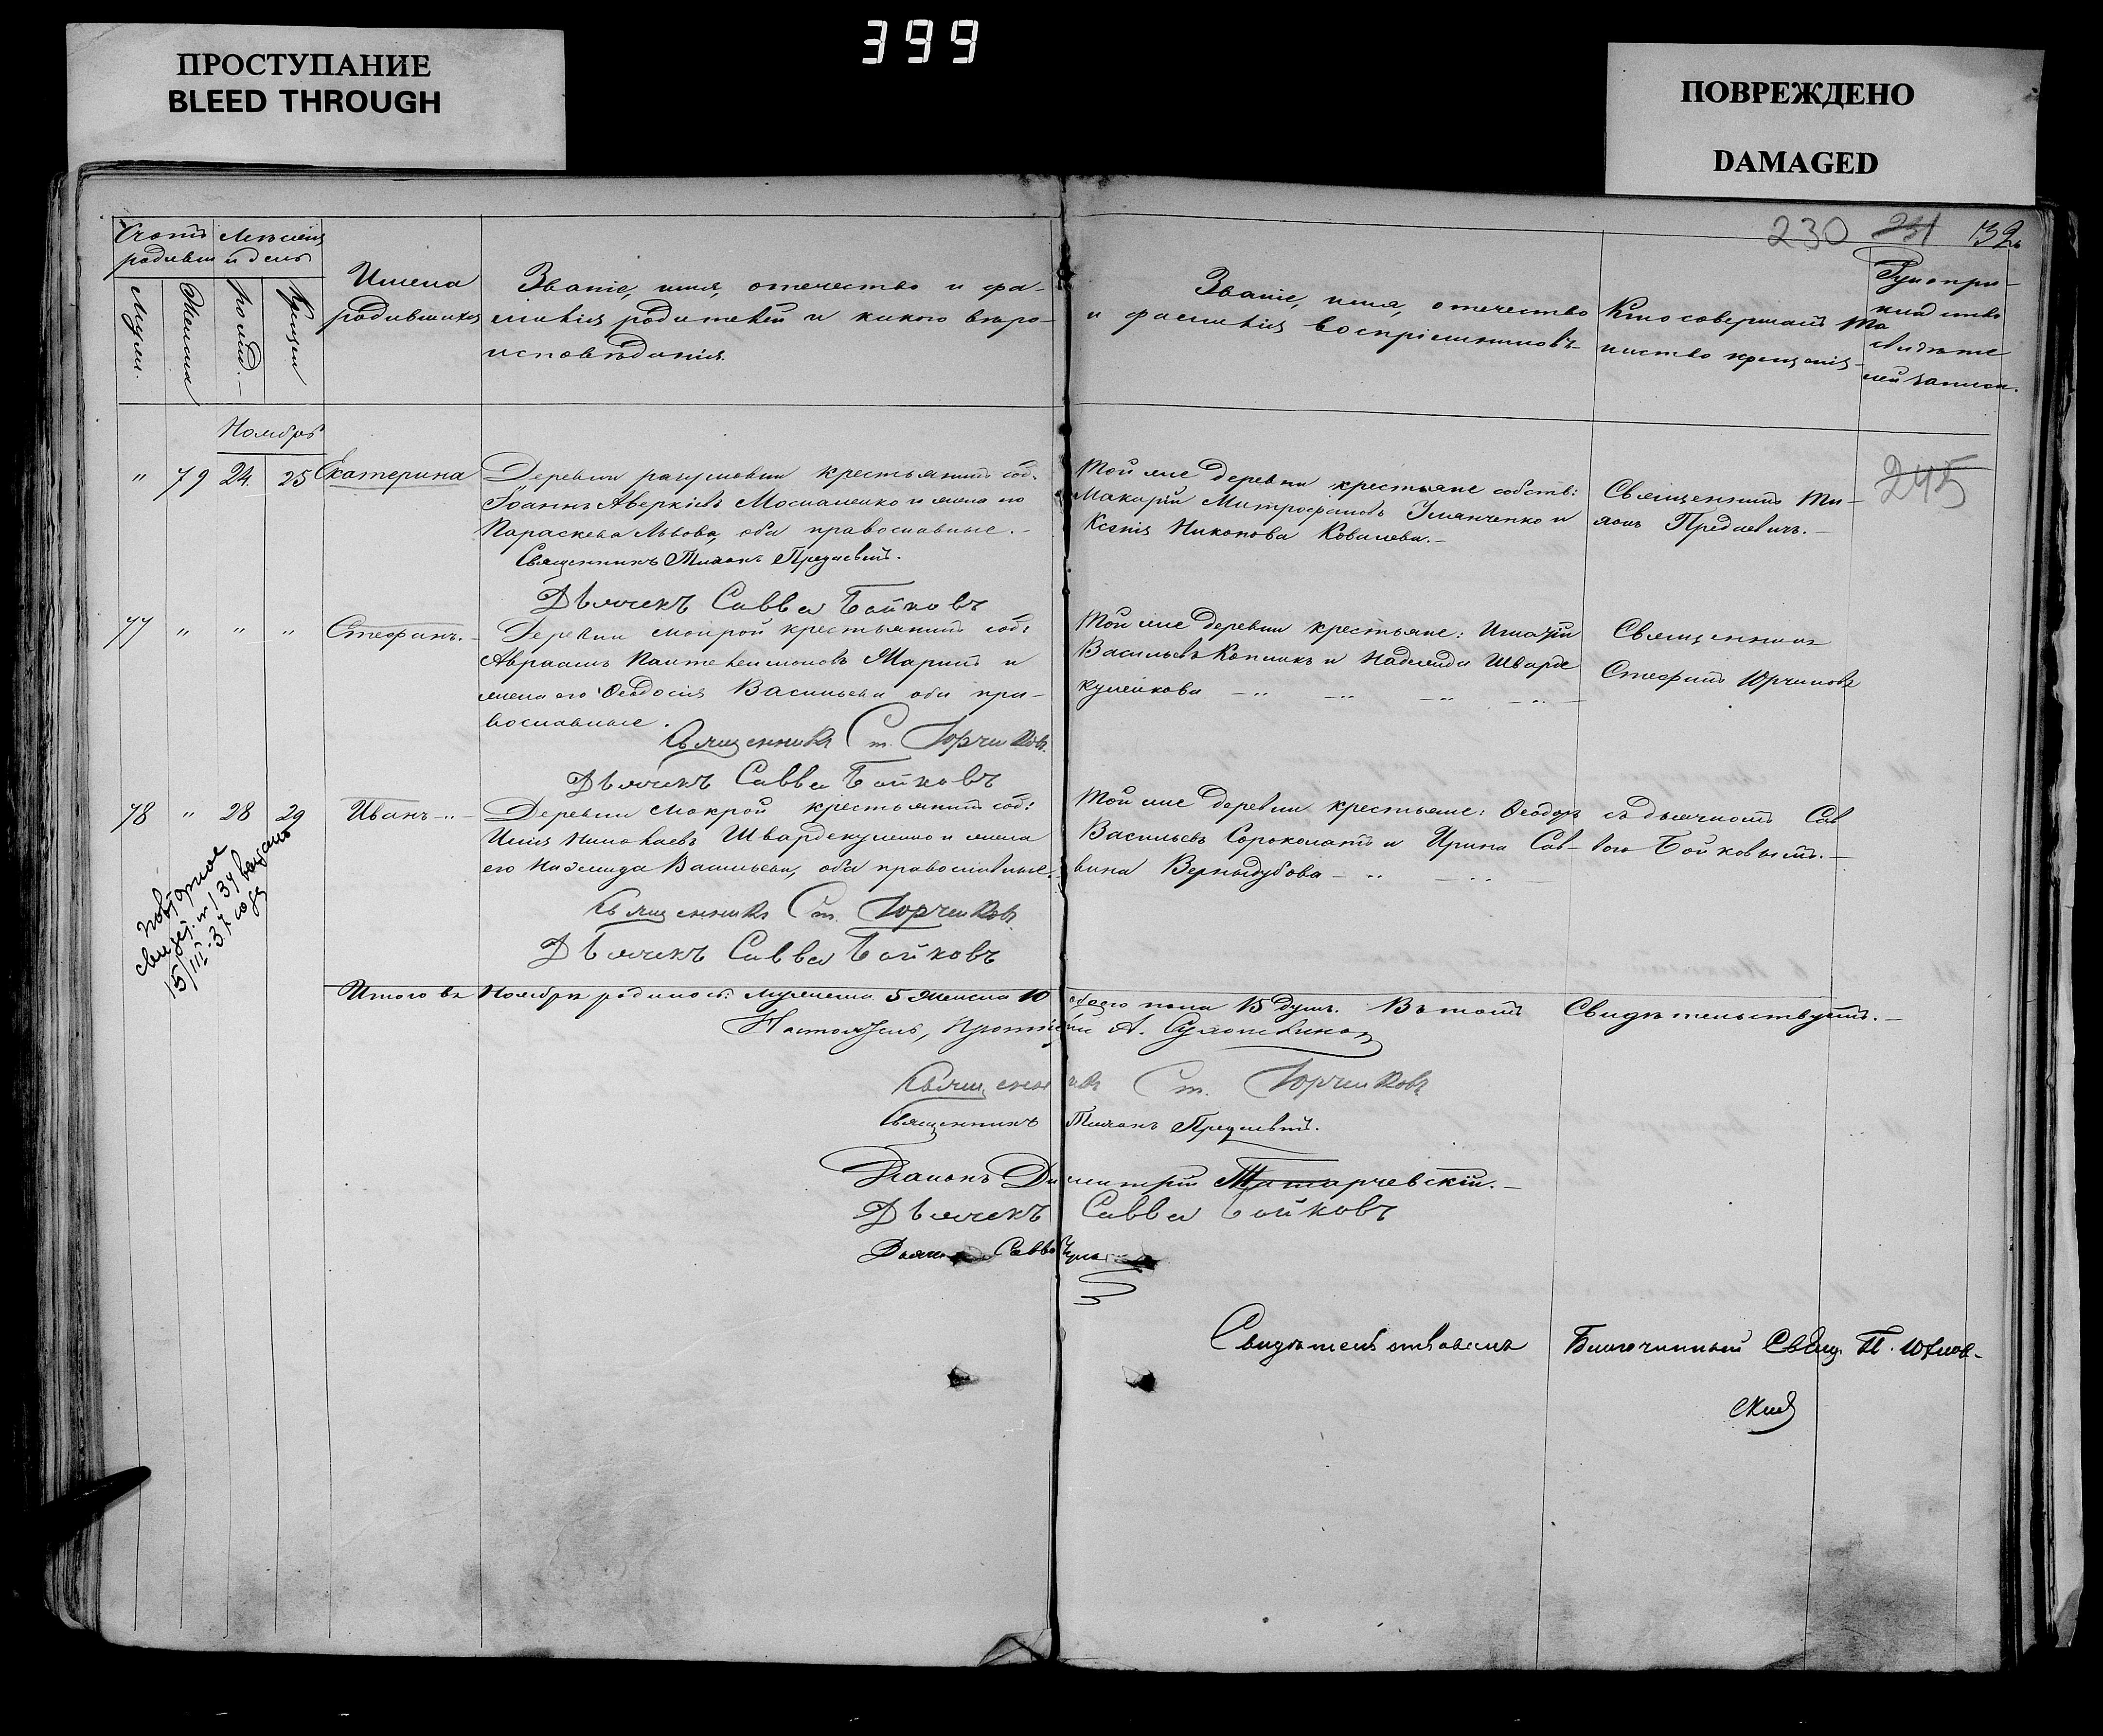 399
ПРОСТУПАНИЕ
BLEED THROUGH
ПОВРЕЖДЕНО
DAMAGED
230 231 132
Счетъ родивш
Мѣсяцъ и день
Муж.
Женска
рожд.
Крещен
Имена
родившихся
Званіе, имя, отечество и фа-
милія родителей и какого вѣро-
исповѣданія.
Званіе, имя, отечество
и фамилія воспріемниковъ
Кто совершалъ та
инство крещенія
Рукопри-
кладство
свидѣте
лей записи.
Ноябрь
" 79 24. 25 Екатерина
Деревни разумовки крестьянинъ соб.
Іоаннъ Аверкіевъ Москаленко и жена его
Параскева Львова, оба православные.-
Священникъ Тихонъ Предаевичъ.
Дьячекъ Савва Бойковъ
Той же деревни крестьяне собств:
Макарій Митрофановъ Уманченко и
Ксенія Никонова Ковалева.-
Священникъ Ти-
хонъ Предаевичъ.-
245
77 " " " Стефанъ.-
Деревни мокрой крестьянинъ соб:
Авраамъ Пантелеимоновъ и
жена его Ѳеодосія Васильева оба пра-
вославные.
Священникъ Ст. Юрчиковъ
Дьячекъ Савва Бойковъ
Той же деревни крестьяне: Игнатій
Васильевъ и Надежда Шварде
кулейкова - " -
Священникъ
Стефанъ Юрчиковъ
78 " 28 29 Иванъ - " -
Деревни мокрой крестьянинъ соб:
Илія Николаевъ и жена
его Надежда Васильева, оба православные.-
Священникъ Ст. Юрчиковъ
Дьячекъ Савва Бойковъ
Той же деревни крестьяне: Ѳеодоръ
Васильевъ и Ирина Сав-
вина Вернидубова - " -
съ дьячкомъ Сав
вою Бойковымъ.-
повторное
свидет. н 134 выдано
15/III-37 года
Итого въ Ноябрѣ родилось: мужеска 5 женска 10 обоего пола 15 душъ. Въ томъ Свидѣтельствуемъ.-
Настоятель, Протоіерей А.
Священникъ Ст. Юрчиковъ
Священникъ Тихонъ Предаевичъ.
Діаконъ Димитрій Татарчевскій.-
Дьячекъ Савва Бойковъ
Дьячекъ Савва
Свидѣтельствовалъ Благочинный Свящ. П.
скій